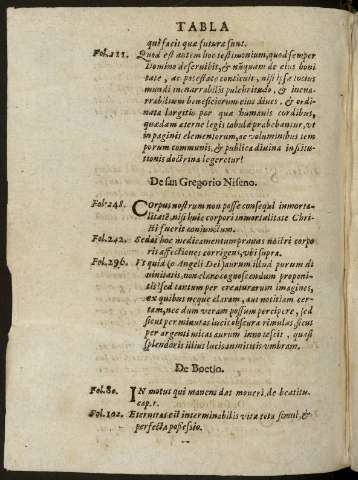 TABLA
qui facit quæ futura sunt.
Fol. 211. Quid est autem hoc testimonium, quod semper
Domino deseruibit, & nũquam de eius boni
tate, ac potestate conticuit, nisi ipsæ totius
mundi inenarrabilis pulchritudo, & inena-
rrabilium beneficiorum eius diues, & ordi-
nata largitio per quæ humanis cordibus,
quædam æternæ legis tabulæ præbebantur, vt
in paginis elementorum, ac voluminibus tem
porum communis, & publica diuina institu-
tionis doctrina legeretur!
De san Gregorio Niseno.
Fol. 248. Corpus nostrum non posse consequi immorta-
litatẽ, nisi huic corpori immortalitate Chri-
sti fuerit coniunctum.
Fol. 242. Sed at hoc medicamentum prauas nostri corpo
ris affectiones corrigens, vti supra.
Fol. 296. Vt quia (o Angeli Dei) aurum illud purum di
uinitatis, non clare cognoscendum proponi-
tis! sed tantum per creaturarum imagines,
ex quibus neque claram, aut notitiam cer-
tam, nec dum veram possum percipere, sed
sicut per minutas lucis obscura rimulas sicut
per argenti mitas aurum innotescit, quasi
splendoris illius lucis amittitis vmbram.
De Boetio.
Fol. 80. IN motus qui manens das moueri, de beatitu.
cap. 1.
Fol. 102. Eternitas est interminabilis vitæ tota simul, &
perfecta possessio.